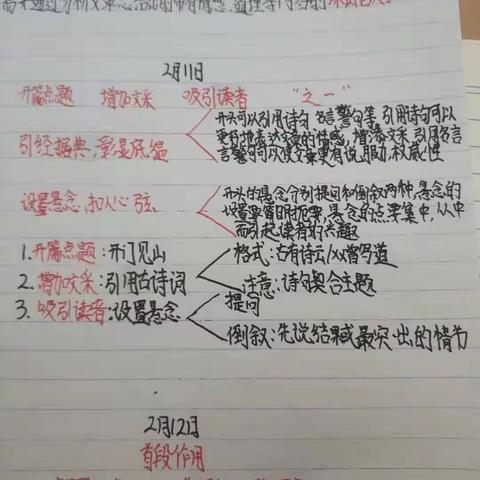 2月11日
开篇点题 增加文采 吸引读者 "之一"
引经据典,彰显底蕴
开头可以引用诗句 名言警句等,引用诗句可以
更好地表达文章的情感,增添文采,引用名言
言警句可以使文章更有说服力,权威性
设置悬念,扣人心弦.
开头的悬念分别提问和倒叙两种,悬念的
设置要简明扼要,悬念的点要集中,从中
而引起读者的兴趣
1.开篇点题:开门见山
2.增加文采:引用古诗词
格式:古有诗云/xx曾写道
注意:诗句契合主题
3.吸引读者:设置悬念
提问
倒叙:先说结果或最突出的情节
2月12日
首段作用